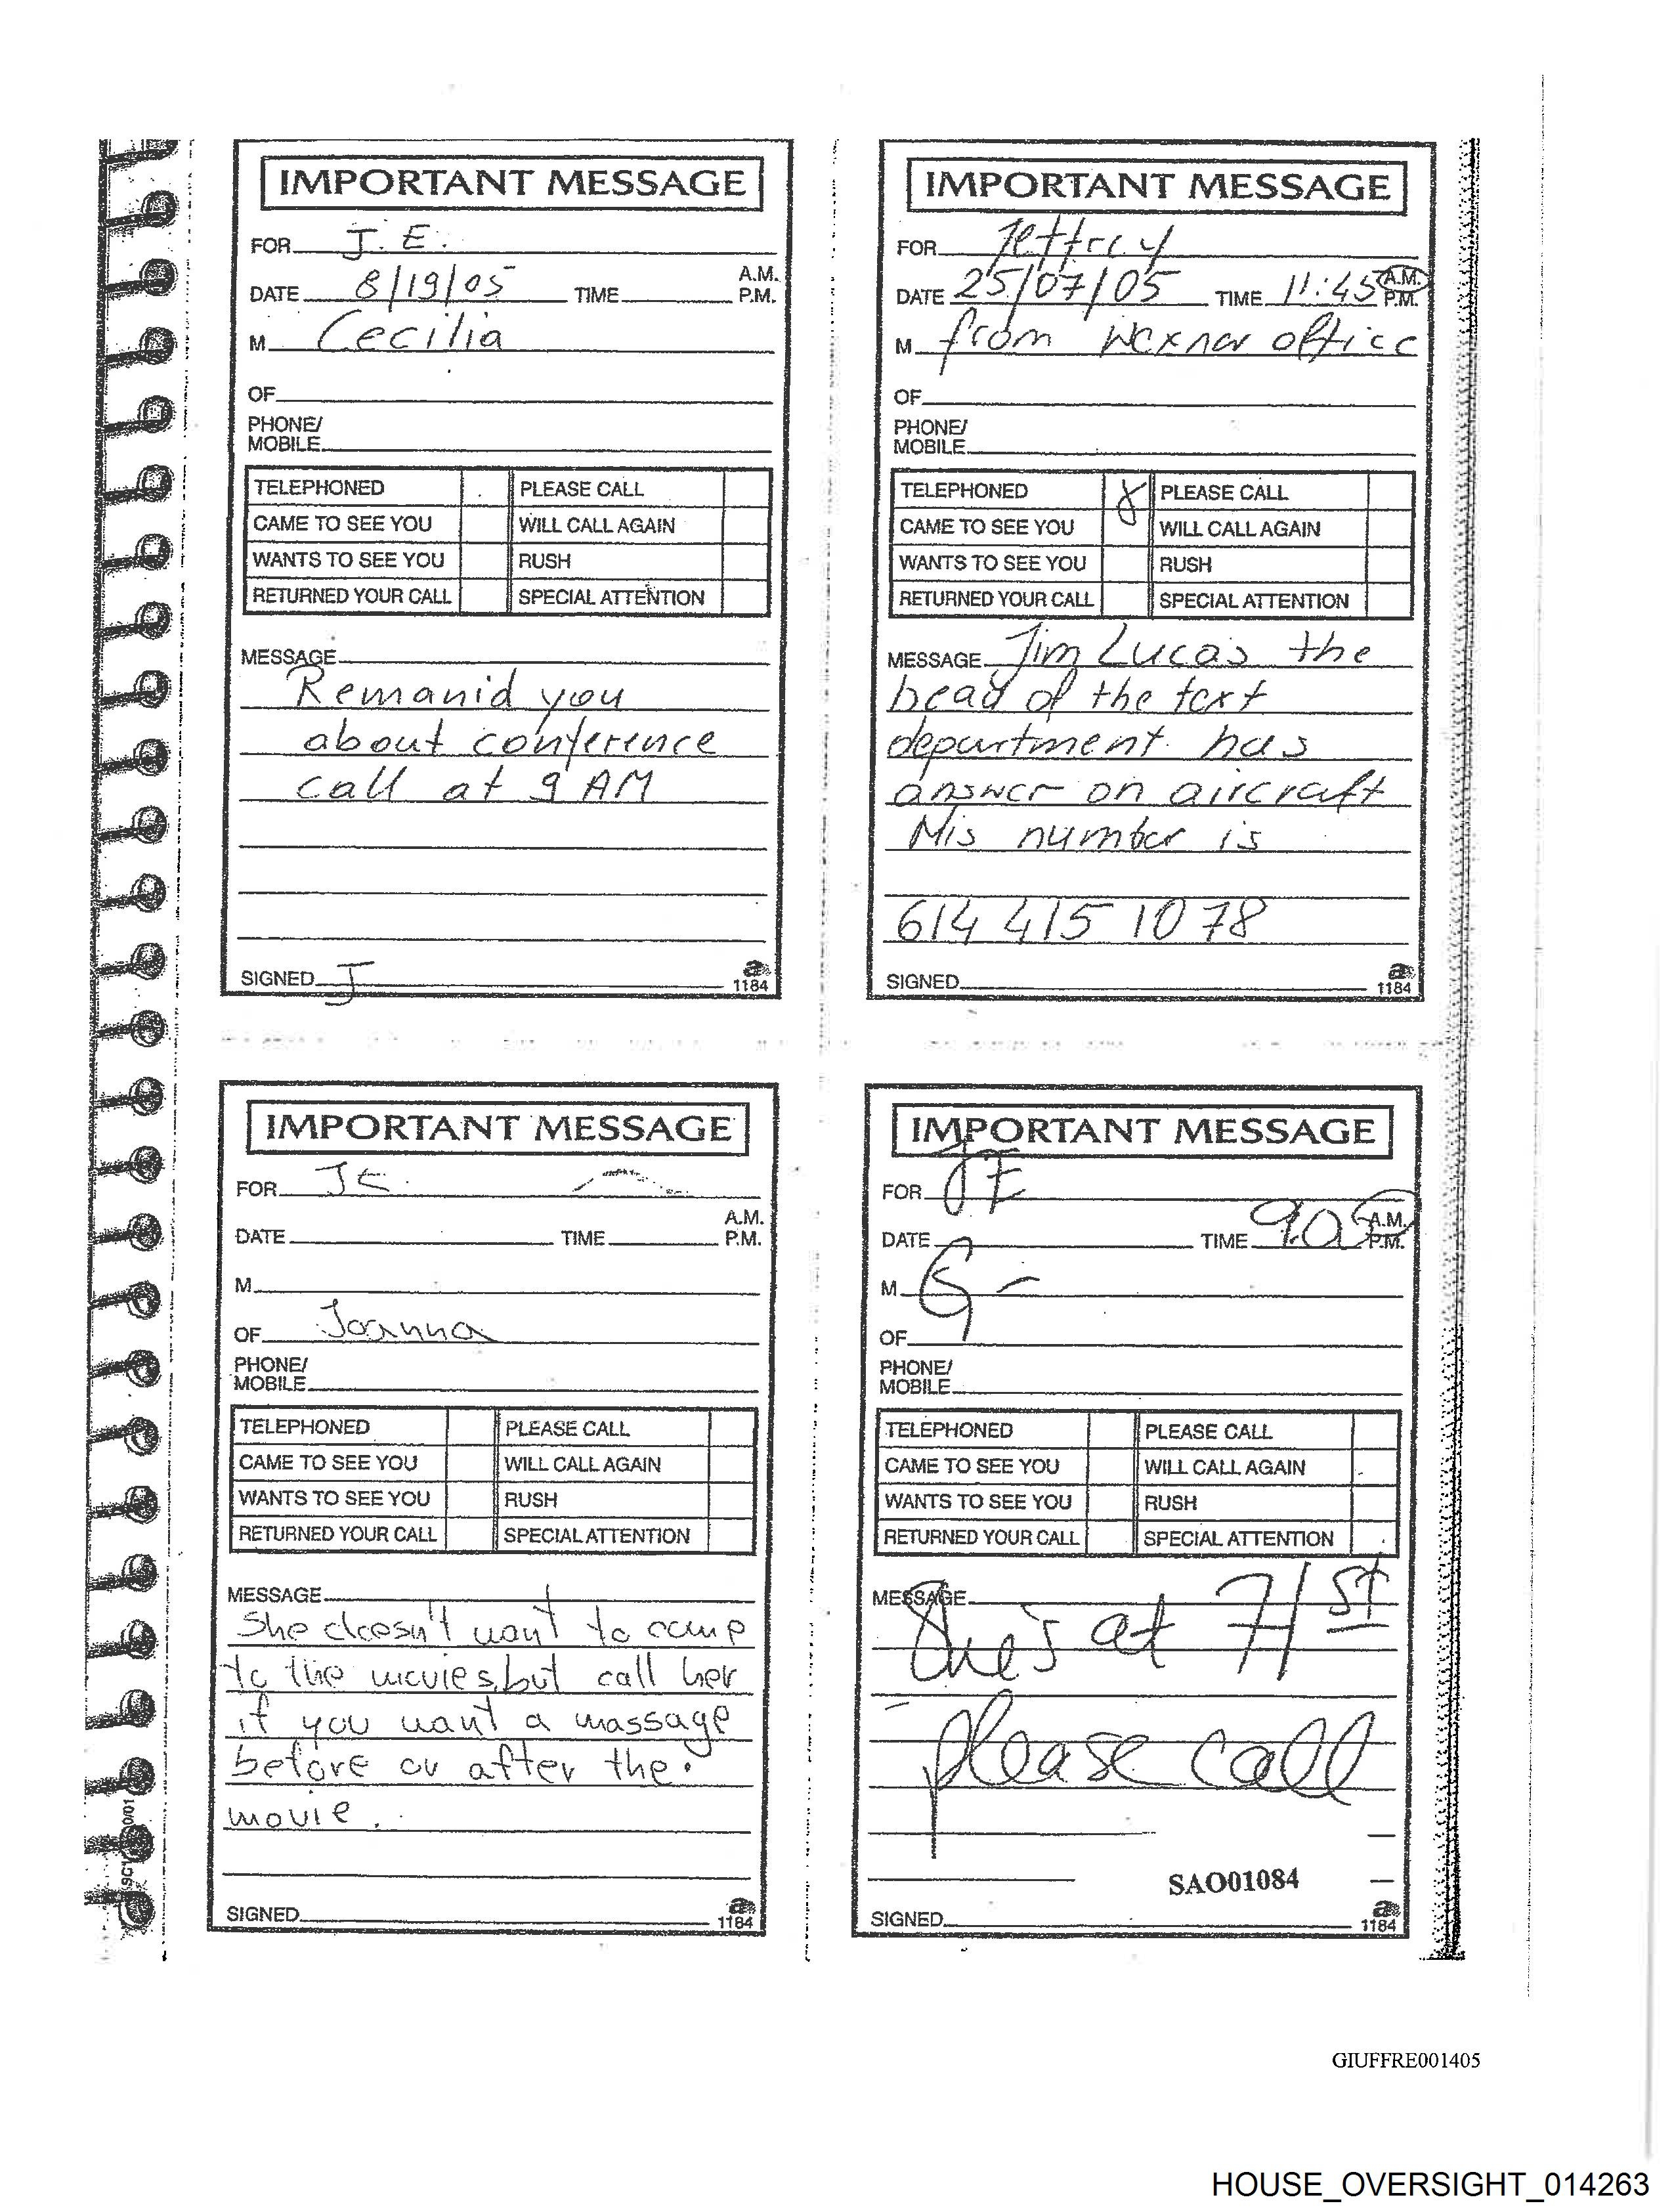 IMPORTANT MESSAGE
FOR J. E.
DATE 8/19/05 TIME A.M. P.M.
M Cecilia
OF
PHONE/
MOBILE
TELEPHONED PLEASE CALL
CAME TO SEE YOU WILL CALL AGAIN
WANTS TO SEE YOU RUSH
RETURNED YOUR CALL SPECIAL ATTENTION
MESSAGE
Remanid you
about conference
call at 9 AM
SIGNED J
1184
IMPORTANT MESSAGE
FOR Jeffrey
DATE 25/07/05 TIME 11:45 A.M. P.M.
M from Wexner office
OF
PHONE/
MOBILE
TELEPHONED X PLEASE CALL
CAME TO SEE YOU WILL CALL AGAIN
WANTS TO SEE YOU RUSH
RETURNED YOUR CALL SPECIAL ATTENTION
MESSAGE Jim Lucas the
head of the text
department has
answer on aircraft
His number is
614 415 1078
SIGNED
1184
IMPORTANT MESSAGE
FOR JE.
DATE TIME A.M. P.M.
M
OF Joanna
PHONE/
MOBILE
TELEPHONED PLEASE CALL
CAME TO SEE YOU WILL CALL AGAIN
WANTS TO SEE YOU RUSH
RETURNED YOUR CALL SPECIAL ATTENTION
MESSAGE
She doesn't want to come
to the movies, but call her
if you want a massage
before or after the
movie.
SIGNED
1184
IMPORTANT MESSAGE
FOR JE
DATE TIME A.M. P.M.
M G-
OF
PHONE/
MOBILE
TELEPHONED PLEASE CALL
CAME TO SEE YOU WILL CALL AGAIN
WANTS TO SEE YOU RUSH
RETURNED YOUR CALL SPECIAL ATTENTION
MESSAGE
She's at 71st
- please call
SAO01084
SIGNED
1184
GIUFFRE001405
HOUSE_OVERSIGHT_014263